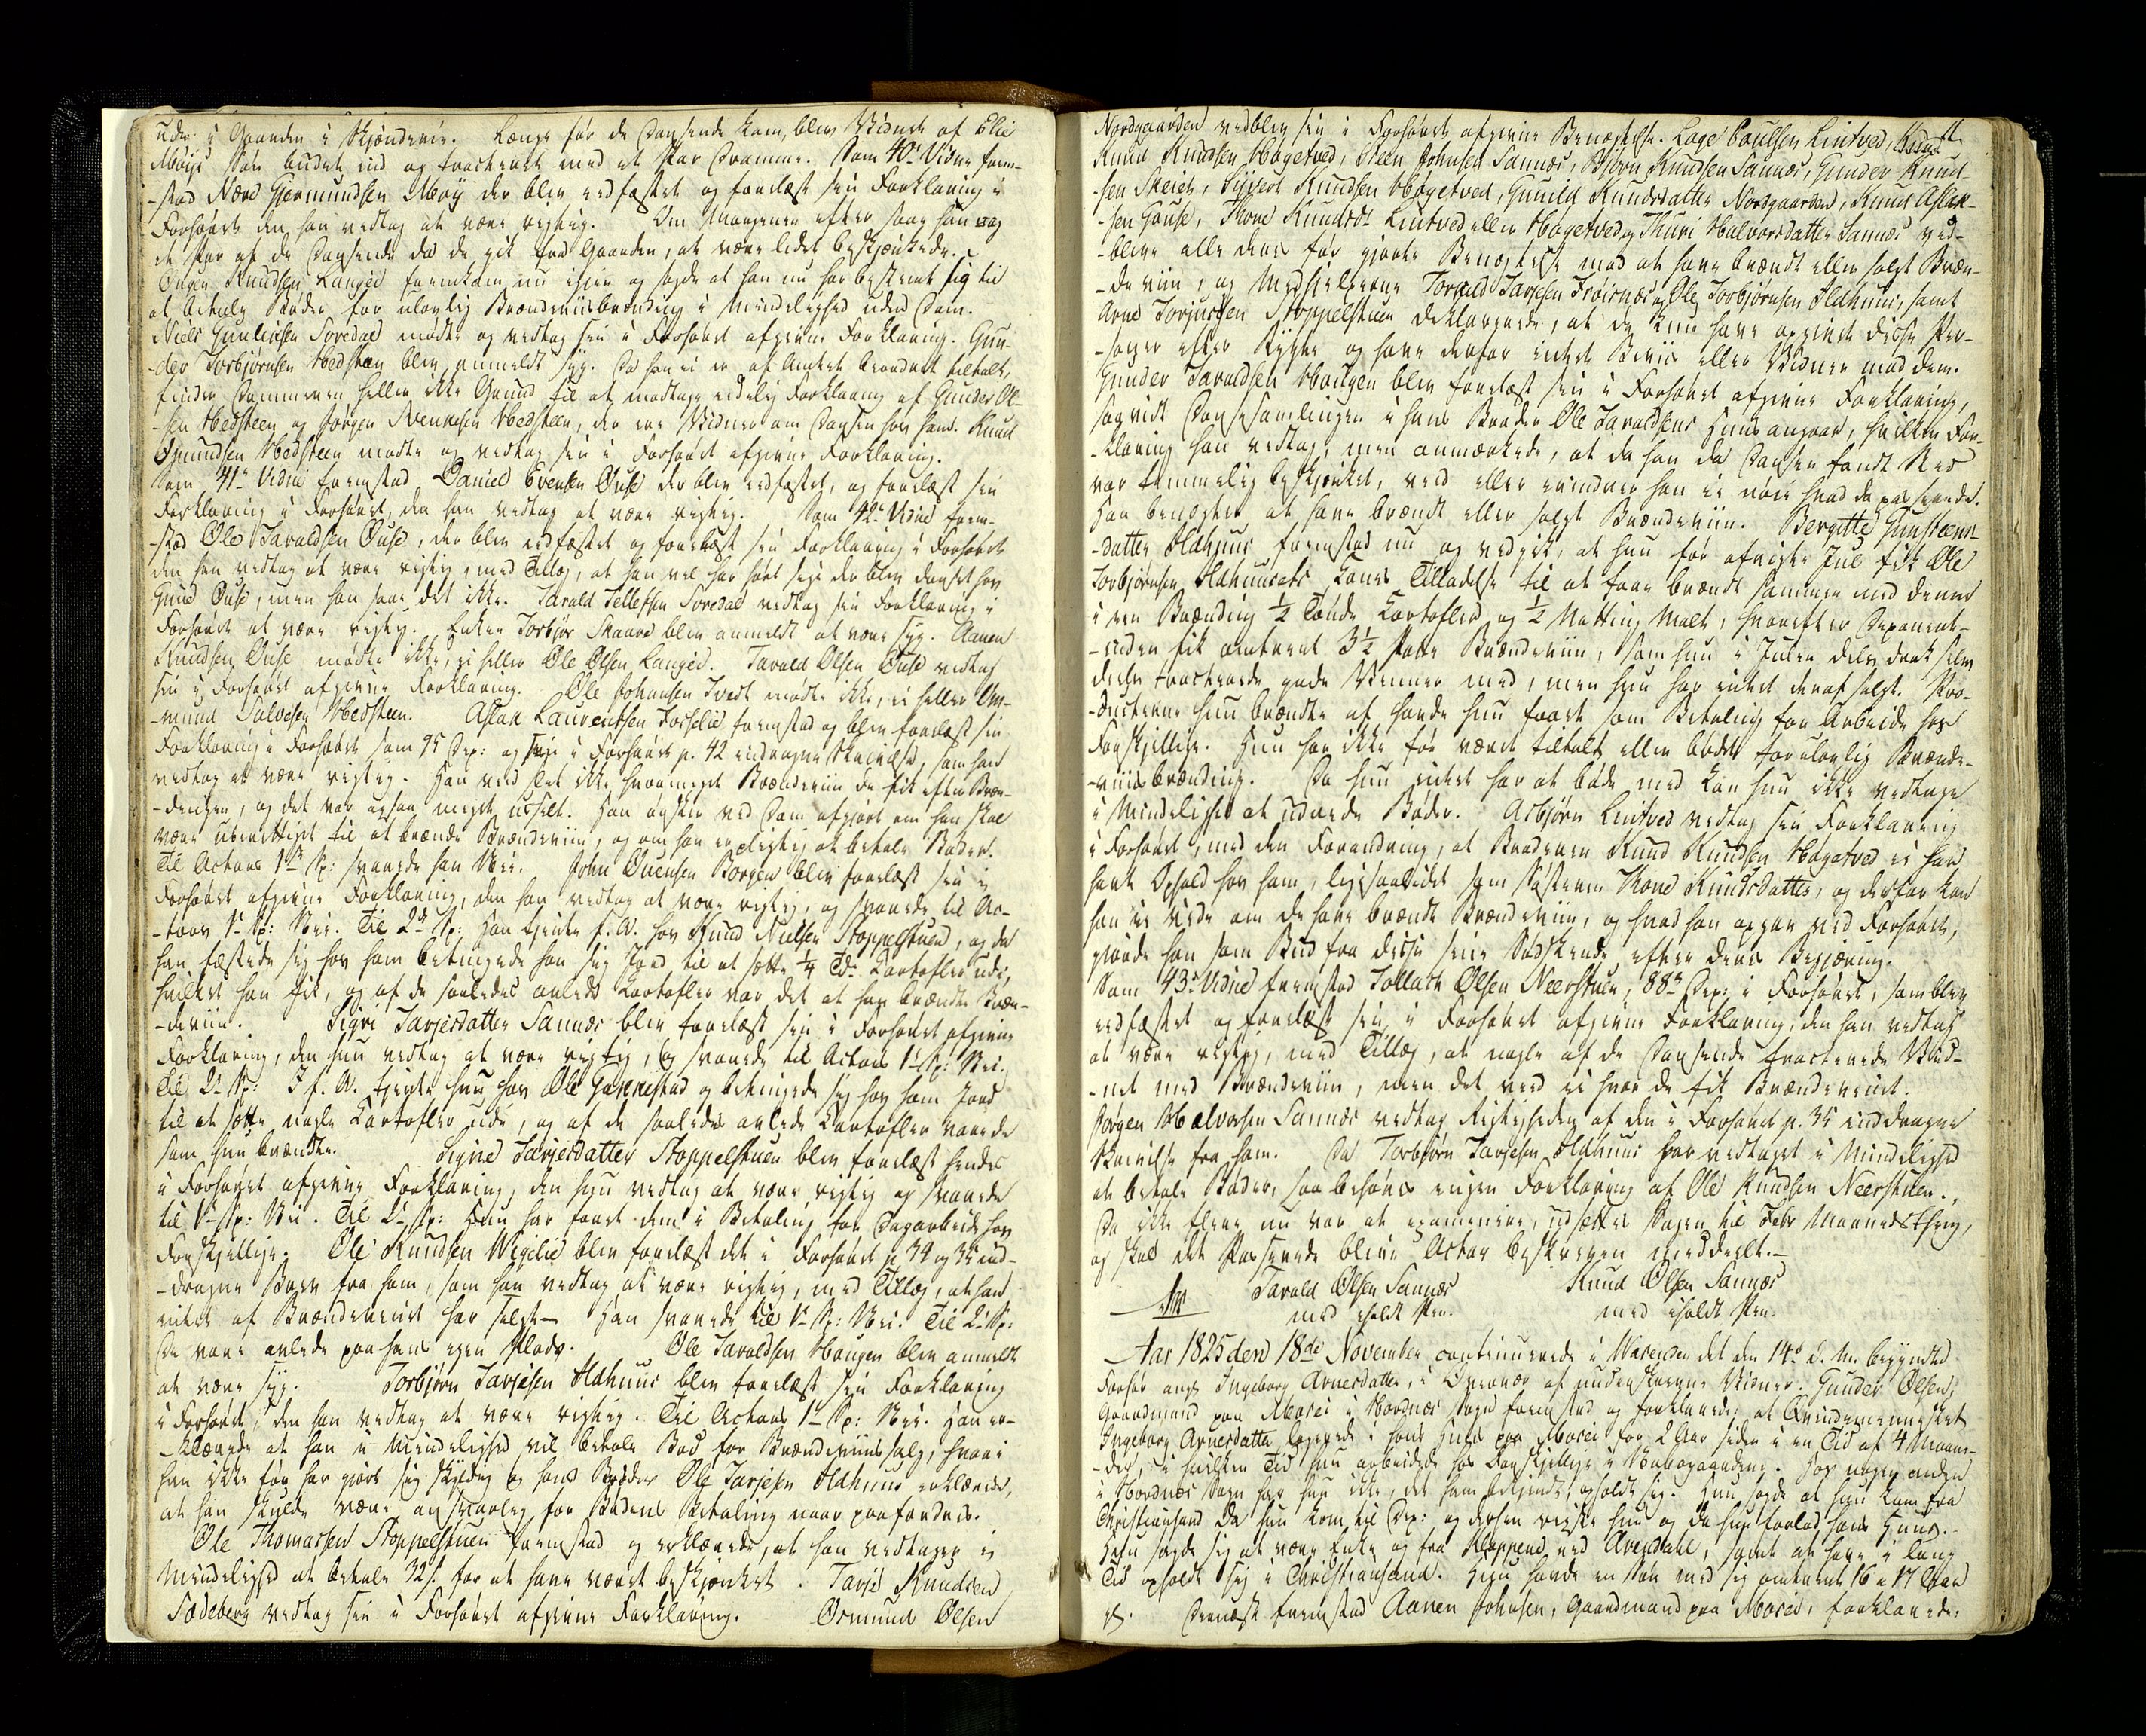 ude i Gaarden i Skjænderie. Længe før de Dansende kom, blev Vidnet af Elie
Møijs Søn budet ind og tracteret med et Par Dramme. Som 40de Vidne frem-
-stod Næri Germundsen Møij der blev eedfæstet og forelæst sin Forklaring i
Forhøret den han vedtog at være rigtig. Om Morgenen efter saae han og
et Par af de Dansende da de gik fra Gaarden, at være lidet beskjænkede.
Knudsen Langjed fremkom nu igjen og sagde at han nu har bestemt sig til
at betale Bøder for ulovlig Brændeviinsbrænding i Mindelighed uden Dom.
Niels Gunleiksen Soredal mødte og vedtog sin i Forhøret afgivne Forklaring. Gun-
-der Torbjørnsen Hedsteen blev anmeldt syg. Da han ei er af Amtet beordret tiltalt,
finder Dommeren heller ikke Grund til at modtage eedelig Forklaring af Gunder Ol-
-sen Hedsteen og Jørgen Svennesen Hedsteen, der var Vidner om Dansen hos ham. Knud
Omundsen Hedsteen mødte og vedtog sin i Forhøret afgivne Forklaring.
Som 41de Vidne fremstod Daniel Evensen Ouse der blev eedfæstet, og forelæst sin
Forklaring i Forhøret, den han vedtog at være rigtig. Som 42de Vidne frem-
-stod Ole Taraldsen Ouse, der blev eedfæstet og forelæst sin Forklaring i Forhøret
den han vedtog at være rigtig, med Tillæg, at han vel har hørt sige der blev danset hos
Ouse, men han saae det ikke. Tarald Tellefsen Soredal vedtog sin Forklaring i
Forhøret at være rigtig. Enken Torbjør Skaare blev anmeldt at være syg. Aanen
Knudsen Ouse mødte ikke, ei heller Ole Olsen Langjed. Tarald Olsen Ouse vedtog
sin i Forhøret afgivne Forklaring. Ole Johansen Tvedt mødte ikke, ei heller Om-
-mund Salvesen Hedsteen. Aslak Laurentsen Fosselie fremstod og blev forelæst sin
Forklaring i Forhøret som 95 Dep: og sin i Forhøret p. 42 inddragne Skrivelse, som han
vedtog at være rigtig. Han veed slet ikke hvormeget Brændeviin de fik efter Bræn-
-dingen, og det var ogsaa meget usselt. Han ønsker ved Dom afgjort om han skal
være uberettiget til at brænde Brændeviin, og om han er pligtig at betale Bøder.
Til Actors 1ste Sp: svarede han Nei. John Ouensen Borgen blev forelæst sin i
Forhøret afgivne Forklaring, den han vedtog at være rigtig, og svarede til Ac-
-tors 1te Sp: Nei. Til 2de Sp: Han tjente f. A. hos Knud Nielsen Stoppelstuen, og da
han fæstede sig hos ham betingede han sig Jord til at sætte 1/4 Td: Kartofler ude,
hvilket han fik, og af de saaledes avlede Kartofler var det at han brændte Bræn-
-deviin. Sigri Tarjesdatter Sannæs blev forelæst sin i Forhøret afgivne
Forklaring, den hun vedtog at være rigtig, og svarede til Actors 1te Sp: Nei.
Til 2de Sp: I f. A. tjente hun hos Ole Gakkestad og betingede sig hos ham Jord
til at sætte nogle Kartofler ude, og af de saaledes avlede Kartofler vare de
som hun brændte. Signe Tarjesdatter Stoppelstuen blev forelæst hendes
i Forhøret afgivne Forklaring, den hun vedtog at være rigtig og svarede
til 1te Sp: Nei. Til 2de Sp: Hun har faaet dem i Betaling for Dagarbeide hos
Forskjellige. Ole Knudsen Vigelie blev forelæst det i Forhøret p 34 og 35 ind-
-dragne Svar fra ham, som han vedtog at være rigtig, med Tillæg, at han
intet af Brændevinet har solgt. Han svarede til 1te Sp: Nei. Til 2de Sp:
De vare avlede paa hans egen Plads. Ole Taraldsen Haugen blev anmeldt
at være syg. Torbjørn Tarjesen Hdhuus blev forelæst sin Forklaring
i Forhøret, den han vedtog at være rigtig. Til Actors 1te Sp: Nei. Han er-
-klærede at han i Mindelighed vil betale Bod for Brændeviins salg, hvori
han ikke før har gjort sig skyldig og hans Broder Ole Tarjesen Hdhuus erklærede,
at han skulde være ansvarlig for Bodens Betaling naar paafordres.
Ole Thomassen Stoppelstuen fremstod og erklærede, at han vedtager i
Mindelighed at betale 32 s. for at have været beskjænket. Tarje Knudsen
Sødeberg vedtog sin i Forhøret afgivne Forklaring. Ormund Olsen
Nordgaarden vedblev sin i Forhøret afgivne Benægtelse. Lage Paulsen Lintved,
Knud Knudsen Høgetved, Steen Johnsen Sannæs, Bjørn Knudsen Sannæs, Gunder Knud-
-sen Skeie, Sijvert Knudsen Høgetved, Gunild Knudsdatter Nordgaarden, Knud Aslak-
-sen Gouse, Thone Knudsdr Lintved eller Høgetved og Thuri Halvorsdatter Sannæs ved-
-bleve alle deres før gjorte Benægtelse mod at have brændt eller solgt Bræn-
-deviin, og Medhjelperne Torond Tarjesen Frøisnæs og Ole Torbjørnsen Hdhuus, samt
Arne Torjussen Stoppelstuen declarerede, at de kun have opgivet disse Per-
-soner efter Rygter og have derfor intet Beviis eller Vidner mod dem.
Gunder Taraldsen Haugen blev forelæst sin i Forhøret afgivne Forklaring,
saavidt Dansesamlingen i hans Broder Ole Taraldsens Huus angaar, hvilken For-
-klaring han vedtog, men anmærkede, at da han da Dansen fandt Sted
var temmelig beskjænket, veed eller erindrer han ei nøie hvad da passerede.
Han benægter at have brændt eller solgt Brændeviin. Bergitte Gunsteens-
-datter Hdhuus fremstod nu og vedgik, at hun før afvigte Juul fik Ole
Torbjørnsen Hdhuusets Kones Tilladelse til at faae brændt sammen med denne
i een Brænding 1/2 Tønde Kartofler og 1/2 Matting Malt, hvorefter Deponent-
-inden fik omtrent 3 1/2 Potter Brændeviin, som hun i Julen dels drak selv
dels tracterede gode Venner med, men hun har intet deraf solgt. Pro-
-ducterne hun brændte af havde hun faaet som Betaling for Arbeide hos
Forskjellige. Hun har ikke før været tiltalt eller bødet for ulovlig Brænde-
-viinsbrænding. Da hun intet har at bøde med kan hun ikke vedtage
i Mindelighed at udrede Bøder. Asbjørn Lintved vedtog sin Forklaring
i Forhøret, med den Forandring, at Broderen Knud Knudsen Høgetved ei har
havt Ophold hos ham, ligesaalidet som Søsteren Thone Knudsdatter, og derfor kan
han ei vide om de have brændt Brændeviin, og hvad han opgav ved Forhøret,
gjorde han som Bud fra disse sine Sødskende efter deres Begjæring.
Som 43de Vidne fremstod Tollach Olsen Neerstuen, 88de Dep: i Forhøret, som blev
eedfæstet og forelæst sin i Forhøret afgivne Forklaring, den han vedtog
at være rigtig, med Tillæg, at nogle af de Dansende tracterede Vid-
-net med Brændeviin, men det veed ei hvor de fik Brændevinet.
Jørgen Halvorsen Sannæs vedtog Rigtigheden af den i Forhøret p. 35 inddragne
Skrivelse fra ham. Da Torbjørn Tarjesen Hdhuus har vedtaget i Mindelighed
at betale Bøder, saa behøves ingen Forklaring af Ole Knudsen Neerstuen.
Da ikke flere nu var at examinere, udsættes Sagen til Febr Maanedsthing,
og skal det Passerede blive Actor beskreven meddeelt.
Tarald Olsen Sannæs Knud Olsen Sannæs
med iholdt Pen. med iholdt Pen.
Aar 1825 den 18de November continuerede i Warenden det den 14de d. M. begyndte
Forhør angl Ingeborg Arnesdatter, i Overvær af underskrevne Vidner. Gunder Olsen,
Gaardmand paa Mosei i Hordnæs Sogn fremstod og forklarede: at Qvindemennesket
Ingeborg Arnesdatter logerede i hans Huus paa Mosei for 2 Aar siden i en Tid af 4 Maane-
-der, i hvilken Tid hun arbeidede hos Forskjellige i Nabogaardene. Hos nogen anden
i Hordnæs Sogn har hun ikke, det ham bekjendt, opholdt sig. Hun sagde at hun kom fra
Christiansand da hun kom til Dep: og dertil reiste hun og da hun forlod hans Huus.
Hun sagde sig at være Enke og fra Kloppene ved Arendal, samt at have i lang
Tid opholdt sig i Christiansand. Hun havde en Søn med sig omtrent 16 a 17 Aar
gl. Dernæst fremstod Aanen Johnsen, Gaardmand paa Mosei, forklarede: